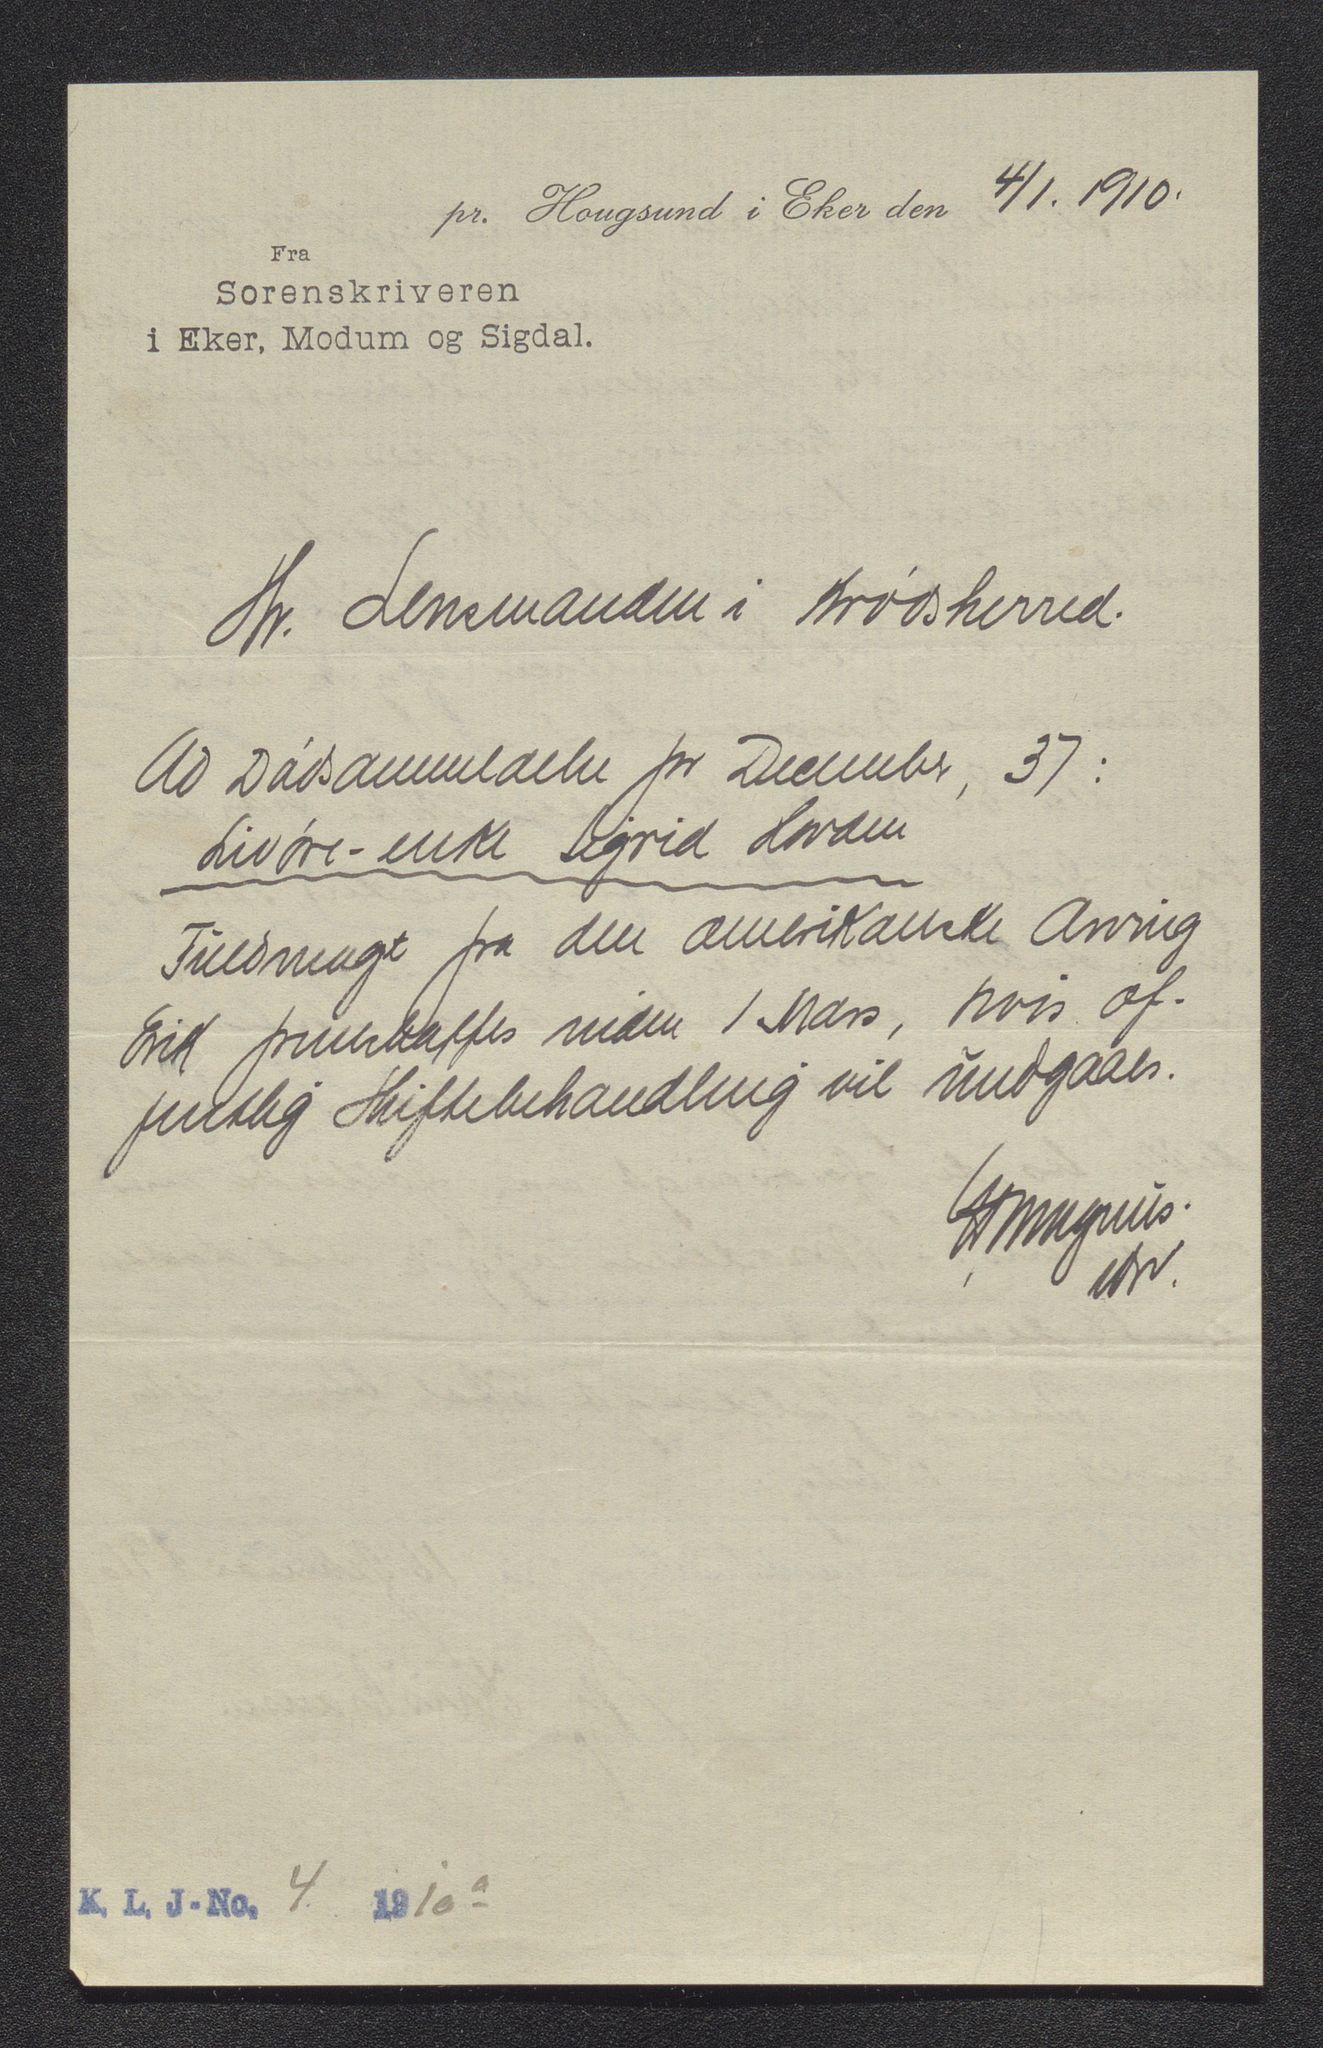 pr. Hougsund i Eker den 4/1. 1910.
Fra
Sorenskriveren
i Eker, Modum og Sigdal.
Hr. Lensmanden i Krødsherred.
Ad Dødsanmeldelse pr December, 37:
Livøre-enke Sigrid Hovden
Fuldmagt fra den amerikanske Arving
Erik fremskaffes inden 1 Mars, hvis of-
fentlig Skiftebehandling vil undgaaes.
Magnus.
K. L. J-No. 4 1910 a